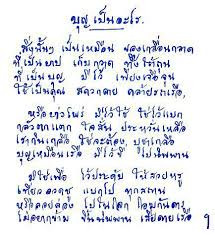 บุญเป็นอะไร.
สิ่งนั้นๆ เป็นเหมือน ของเกลื่อนกลาด
ที่เป็นบาป เก็บกวาด ทิ้งใต้ถุน
ที่เป็นบุญ มีไว้ เพียงเจือจุน
ใช้เป็นคุณ สะดวกดาย คล้ายรถเรือ,
หรือบ่าวไพร่ มีไว้ใช้ ใช่ไว้แบก
กลัวตกแตก ใจสั่น ประหวั่นเหลือ
เรากินเกลือ ใช่จะต้อง บูชาเกลือ
บุญเหมือนเรือ มีไว้ขี่ ไปนิพพาน
มิใช่เพื่อ ไว้ประดับ ให้สวยหรู
เที่ยวอวดชู แบกไป ทุกสถาน
หรือลอยล่อง ไปในโลก โอฆกันดาร
ไม่อยากข้าม ขึ้นนิพพาน เสียดายเรือ ฯ